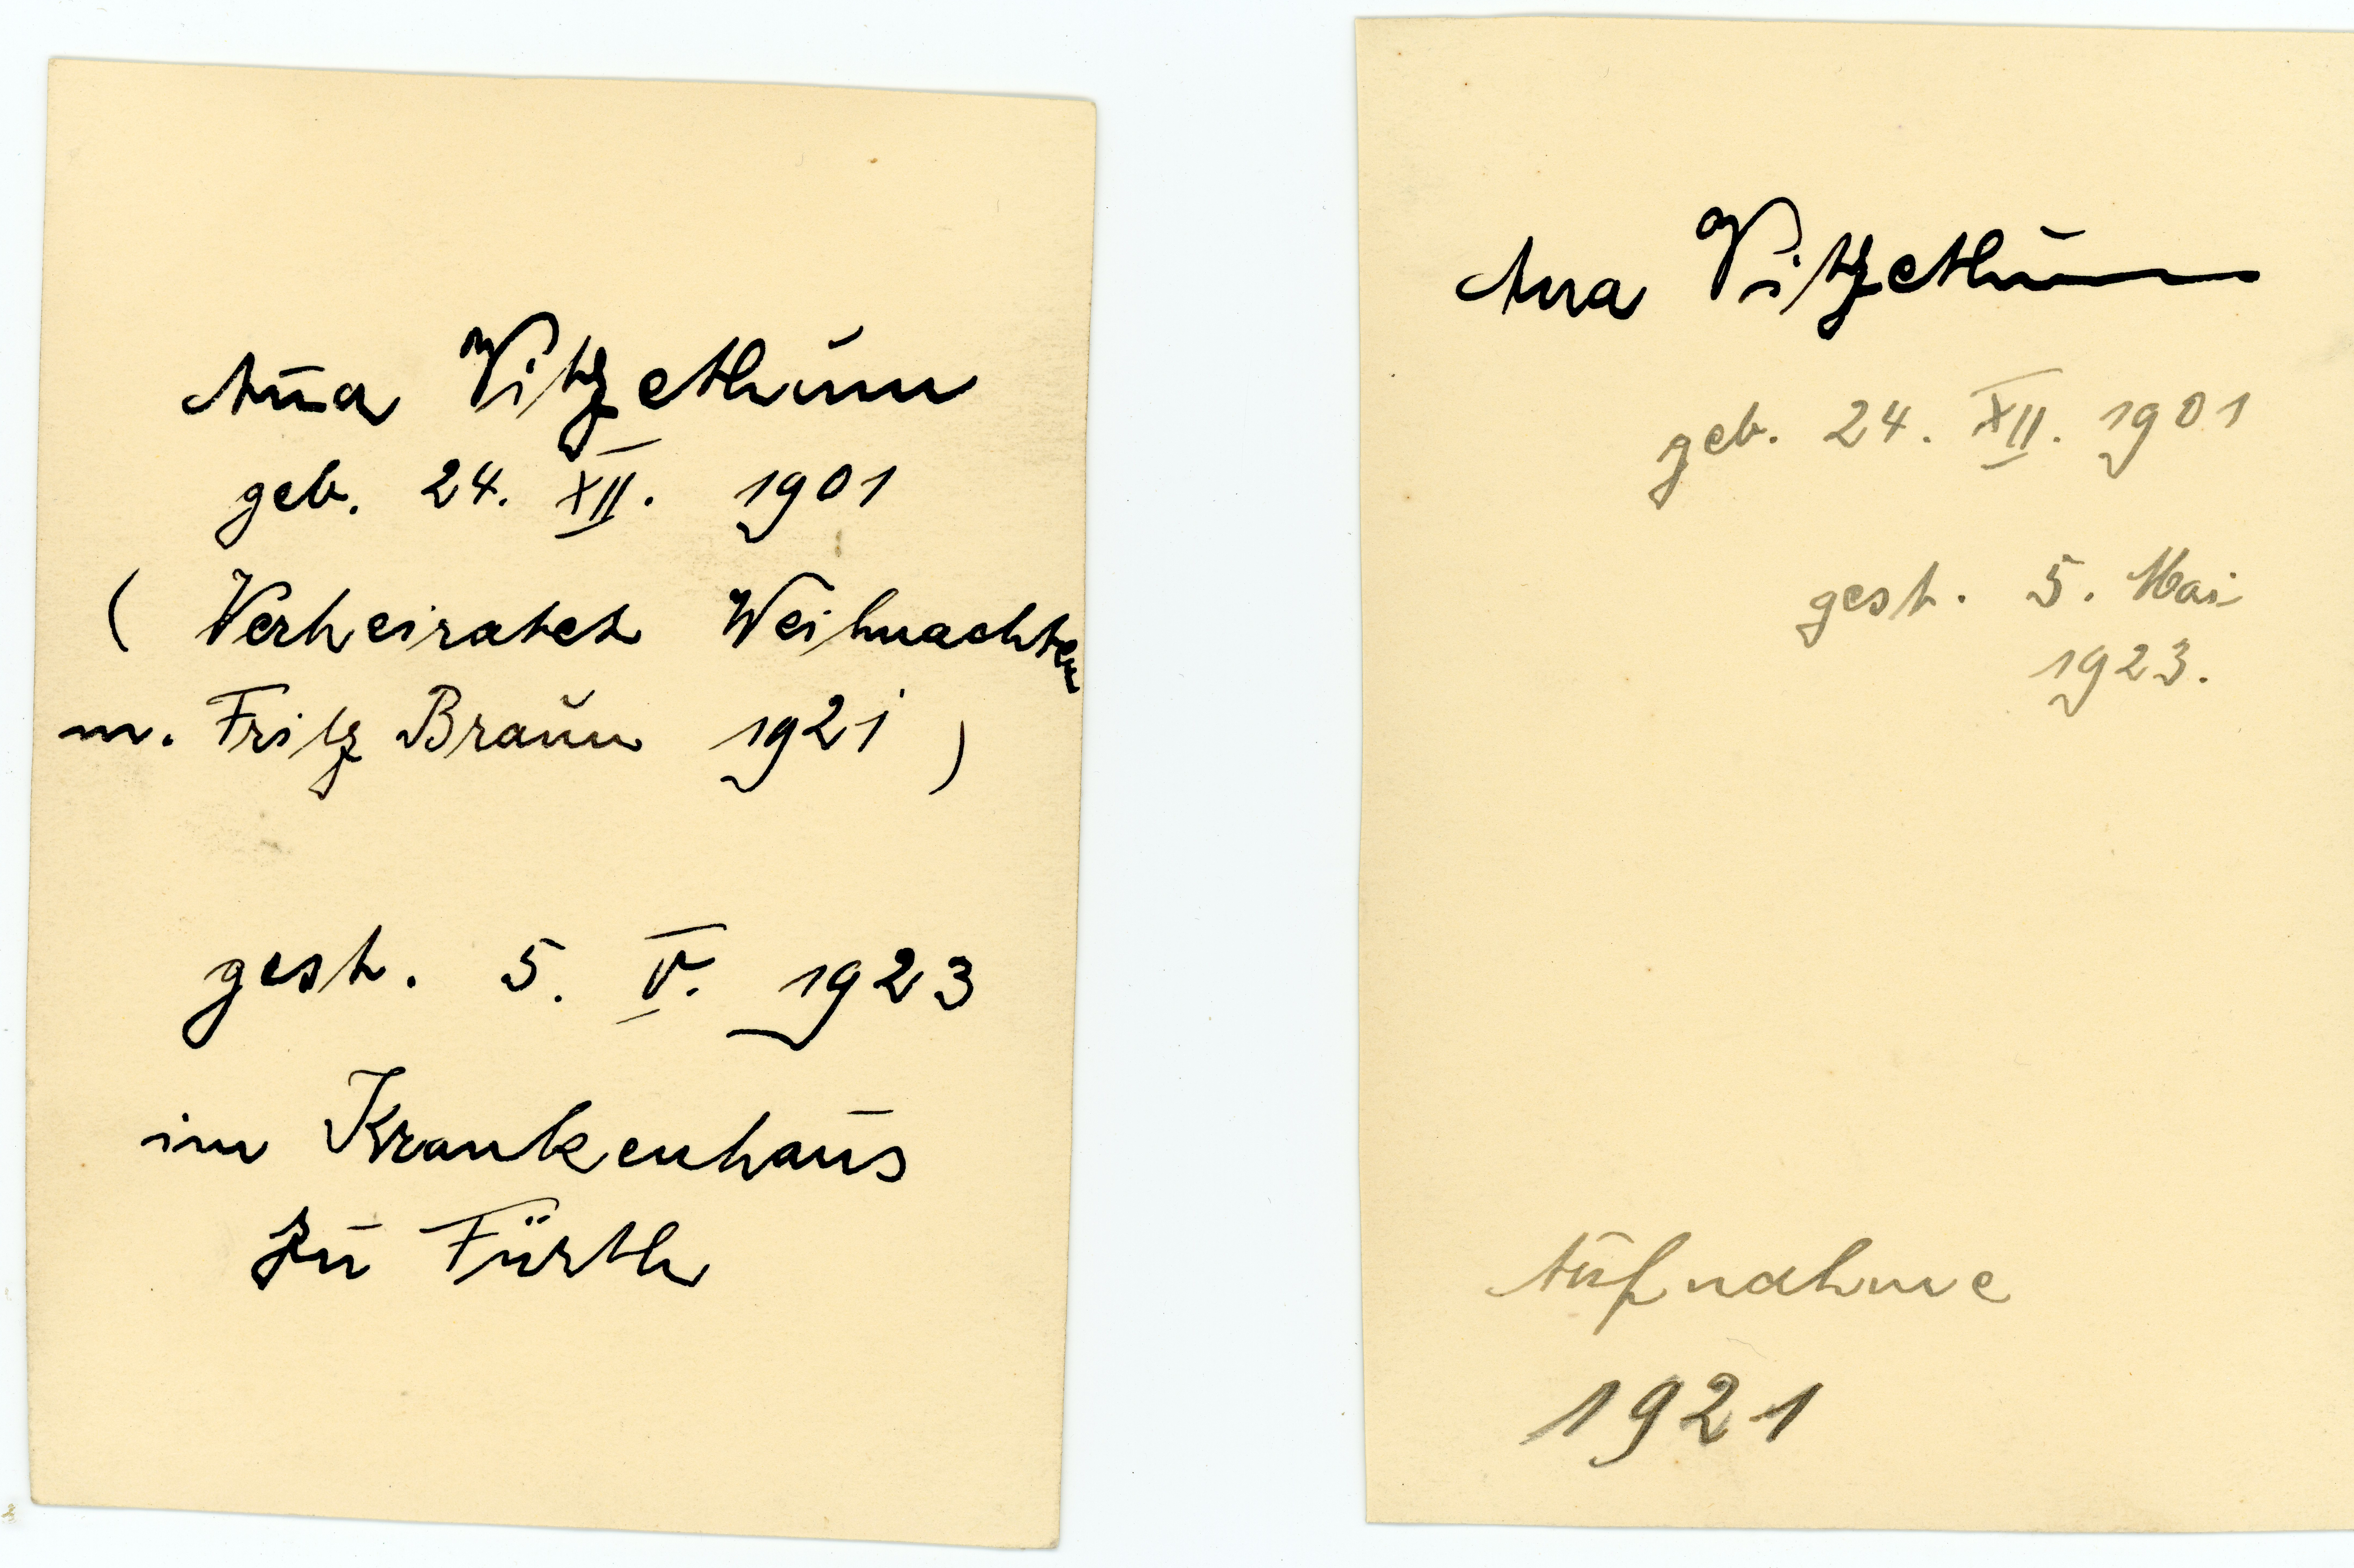 Anna Vitzethum
geb. 24. XII. 1901
( Verheiratet Weihnachten
m. Fritz Braun 1921 )
gest. 5. V. 1923
im Krankenhaus
zu Fürth
Anna Vitzethum
geb. 24. XII. 1901
gest. 5. Mai
1923.
Aufnahme
1921